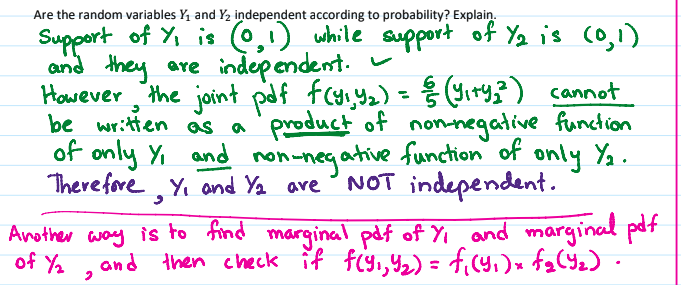 Are the random variables Y₁ and Y₂ independent according to probability? Explain.
Support of Y₁ is (0,1) while support of Y₂ is (0,1)
and they are independent. ✓
However, the joint pdf f(y₁,y₂) = 6/5 (y₁+y₂²) cannot
be written as a product of non-negative function
of only Y₁ and non-negative function of only Y₂.
Therefore, Y₁ and Y₂ are NOT independent.
Another way is to find marginal pdf of Y₁ and marginal pdf
of Y₂, and then check if f(y₁,y₂) = f₁(y₁) × f₂(y₂).